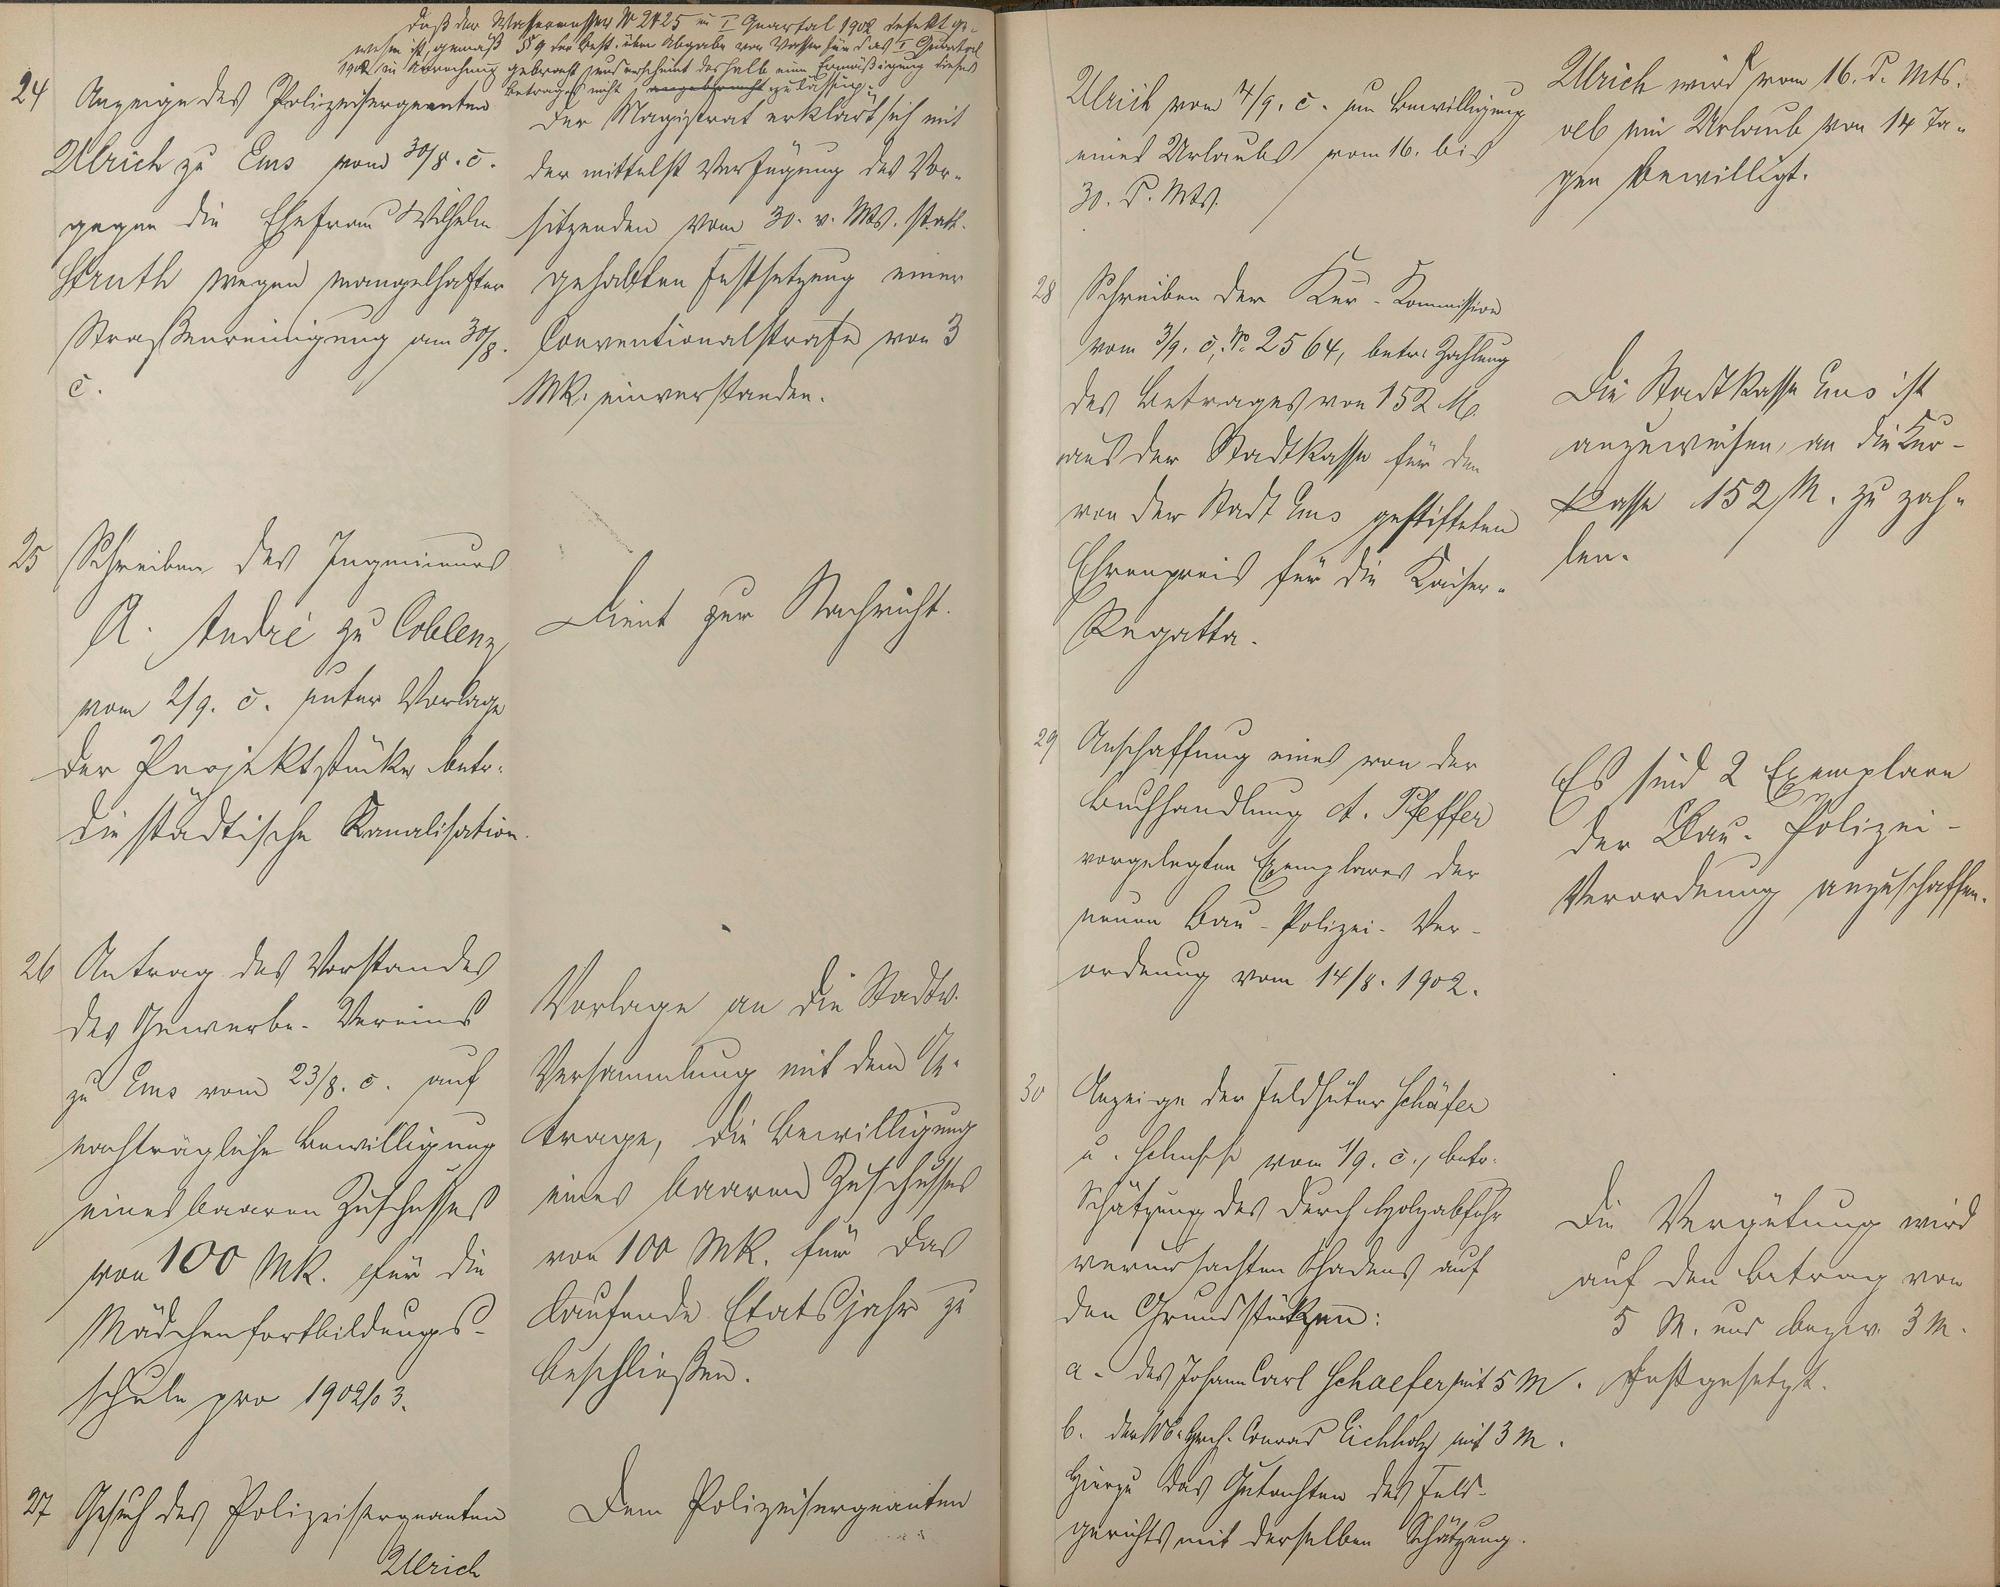 daß der Wassermesser № 2425 im I Quartal 1902 defekt ge-
wesen ist, gemäß § 9 der Best. über Abgabe von Wasser für das I Quartal
1902 in Anrechnung gebracht und erscheint deshalb eine Ermäßigung dieses
Betrages nicht angebracht zulässig.
24 Anzeige des Polizeisergeanten
Ulrich zu Ems vom 30/8. c.
gegen die Ehefrau Wilhelm
Struth wegen mangelhafter
Straßenreinigung am 30/8.
c.
Der Magistrat erklärt sich mit
der mittelst Verfügung des Vor-
sitzenden vom 30. v. Mts. statt-
gehabten Festsetzung einer
Conventionalstrafe von 3
Mk. einverstanden.
25 Schreiben des Ingenieurs
A. André zu Coblenz
vom 2/9. c. unter Vorlage
der Projektstücke betr.
die städtische Kanalisation.
Dient zur Nachricht.
26 Antrag des Vorstandes
des Gewerbe-Vereins
zu Ems vom 23/8. c. auf
nachträgliche Bewilligung
eines baaren Zuschusses
von 100 Mk. für die
Mädchenfortbildungs-
schule pro 1902/03.
Vorlage an die Stadtv.
Versammlung mit dem An-
trage, die Bewilligung
eines baaren Zuschusses
von 100 Mk. für das
laufende Etatsjahr zu
beschließen.
27 Gesuch des Polizeisergeanten
Ulrich
Dem Polizeisergeanten
Ulrich vom 4/9. c. um Bewilligung
eines Urlaubs vom 16. bis
30. d. Mts.
Ulrich wird vom 16. d. Mts.
ab ein Urlaub von 14 Ta-
gen bewilligt.
28 Schreiben der Kur-Kommission
vom 3/9. c., № 2564, betr. Zahlung
des Betrages von 152 M.
aus der Stadtkasse für den
von der Stadt Ems gestifteten
Ehrenpreis für die Kaiser-
Regatta.
Die Stadtkasse Ems ist
anzuweisen, an die Kur-
kasse 152 M. zu zah-
len.
29 Anschaffung eines von der
Buchhandlung A. Pfeffer
vorgelegten Exemplares der
neuen Bau-Polizei-Ver-
ordnung vom 14/8. 1902.
Es sind 2 Exemplare
der Bau-Polizei-
Verordnung anzuschaffen.
30 Anzeige der Feldhüter Schäfer
u. vom 1/9. c., betr.
Schätzung des durch Holzabfuhr
verursachten Schadens auf
den Grundstücken:
a. des Johann Carl Schaefer mit 5 M.
b. der Conrad Eichholz mit 3 M.
Hierzu das Gutachten des Feld-
gerichts mit derselben Schätzung.
Die Vergütung wird
auf den Betrag von
5 M. und bezw. 3 M.
festgesetzt.